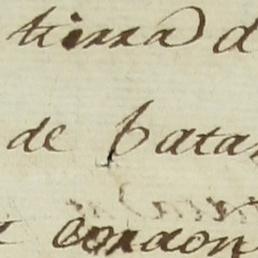 tierra d
de bata
cordon